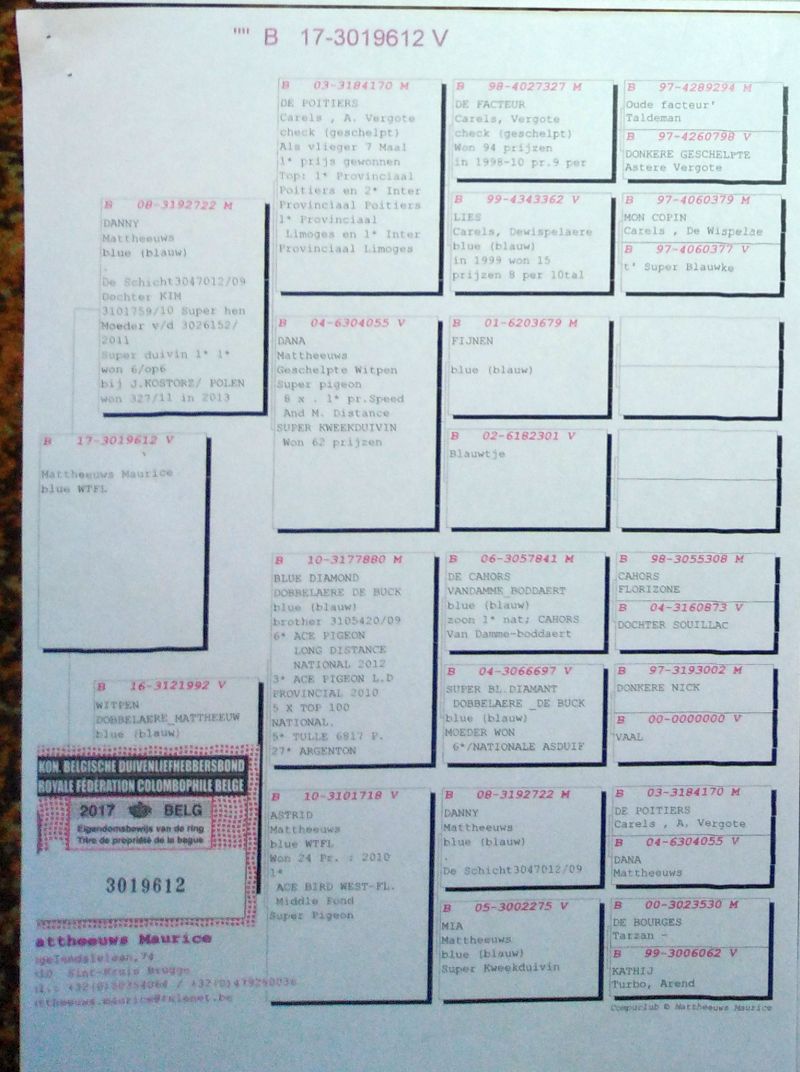 "" B 17-3019612 V
B 08-3192722 M
DANNY
Mattheeuws
blue (blauw)
.
De Schicht3047012/09
Dochter KIM
3101759/10 Super hen
Moeder v/d 3026152/
2011
Super duivin 1* 1*
won 6/op6
bij J.KOSTORZ/ POLEN
won 327/11 in 2013
B 17-3019612 V
Mattheeuws Maurice
blue WTFL
B 16-3121992 V
WITPEN
DOBBELAERE_MATTHEEUW
blue (blauw)
KON. BELGISCHE DUIVENLIEFHEBBERSBOND
ROYALE FÉDÉRATION COLOMBOPHILE BELGE
2017 BELG
Eigendomsbewijs van de ring
Titre de propriété de la bague
3019612
attheeuws Maurice
Sint-Kruis Brugge
B 03-3184170 M
DE POITIERS
Carels , A. Vergote
check (geschelpt)
Als vlieger 7 Maal
1* prijs gewonnen
Top: 1* Provinciaal
Poitiers en 2* Inter
Provinciaal Poitiers
1* Provinciaal
Limoges en 1* Inter
Provinciaal Limoges
B 04-6304055 V
DANA
Mattheeuws
Geschelpte Witpen
Super pigeon
8 x . 1* pr.Speed
And M. Distance
SUPER KWEEKDUIVIN
Won 62 prijzen
B 10-3177880 M
BLUE DIAMOND
DOBBELAERE DE BUCK
blue (blauw)
brother 3105420/09
6* ACE PIGEON
LONG DISTANCE
NATIONAL 2012
3* ACE PIGEON L.D
PROVINCIAL 2010
5 X TOP 100
NATIONAL.
5* TULLE 6817 P.
27* ARGENTON
B 10-3101718 V
ASTRID
Mattheeuws
blue WTFL
Won 24 Pr. : 2010
1*
ACE BIRD WEST-FL.
Middle Fond
Super Pigeon
B 98-4027327 M
DE FACTEUR
Carels, Vergote
check (geschelpt)
Won 94 prijzen
in 1998-10 pr.9 per
B 99-4343362 V
LIES
Carels, Dewispelaere
blue (blauw)
in 1999 won 15
prijzen 8 per 10tal
B 01-6203679 M
FIJNEN
blue (blauw)
B 02-6182301 V
Blauwtje
B 06-3057841 M
DE CAHORS
VANDAMME_BODDAERT
blue (blauw)
zoon 1* nat; CAHORS
Van Damme-boddaert
B 04-3066697 V
SUPER BL.DIAMANT
DOBBELAERE _DE BUCK
blue (blauw)
MOEDER WON
6*/NATIONALE ASDUIF
B 08-3192722 M
DANNY
Mattheeuws
blue (blauw)
.
De Schicht3047012/09
B 05-3002275 V
MIA
Mattheeuws
blue (blauw)
Super Kweekduivin
B 97-4289294 M
Oude facteur'
Taldeman
B 97-4260798 V
DONKERE GESCHELPTE
Astere Vergote
B 97-4060379 M
MON COPIN
Carels , De Wispelae
B 97-4060377 V
t' Super Blauwke
B 98-3055308 M
CAHORS
FLORIZONE
B 04-3160873 V
DOCHTER SOUILLAC
B 97-3193002 M
DONKERE NICK
B 00-0000000 V
VAAL
B 03-3184170 M
DE POITIERS
Carels , A. Vergote
B 04-6304055 V
DANA
Mattheeuws
B 00-3023530 M
DE BOURGES
Tarzan -
B 99-3006062 V
KATHIJ
Turbo, Arend
Compuclub © Mattheeuws Maurice